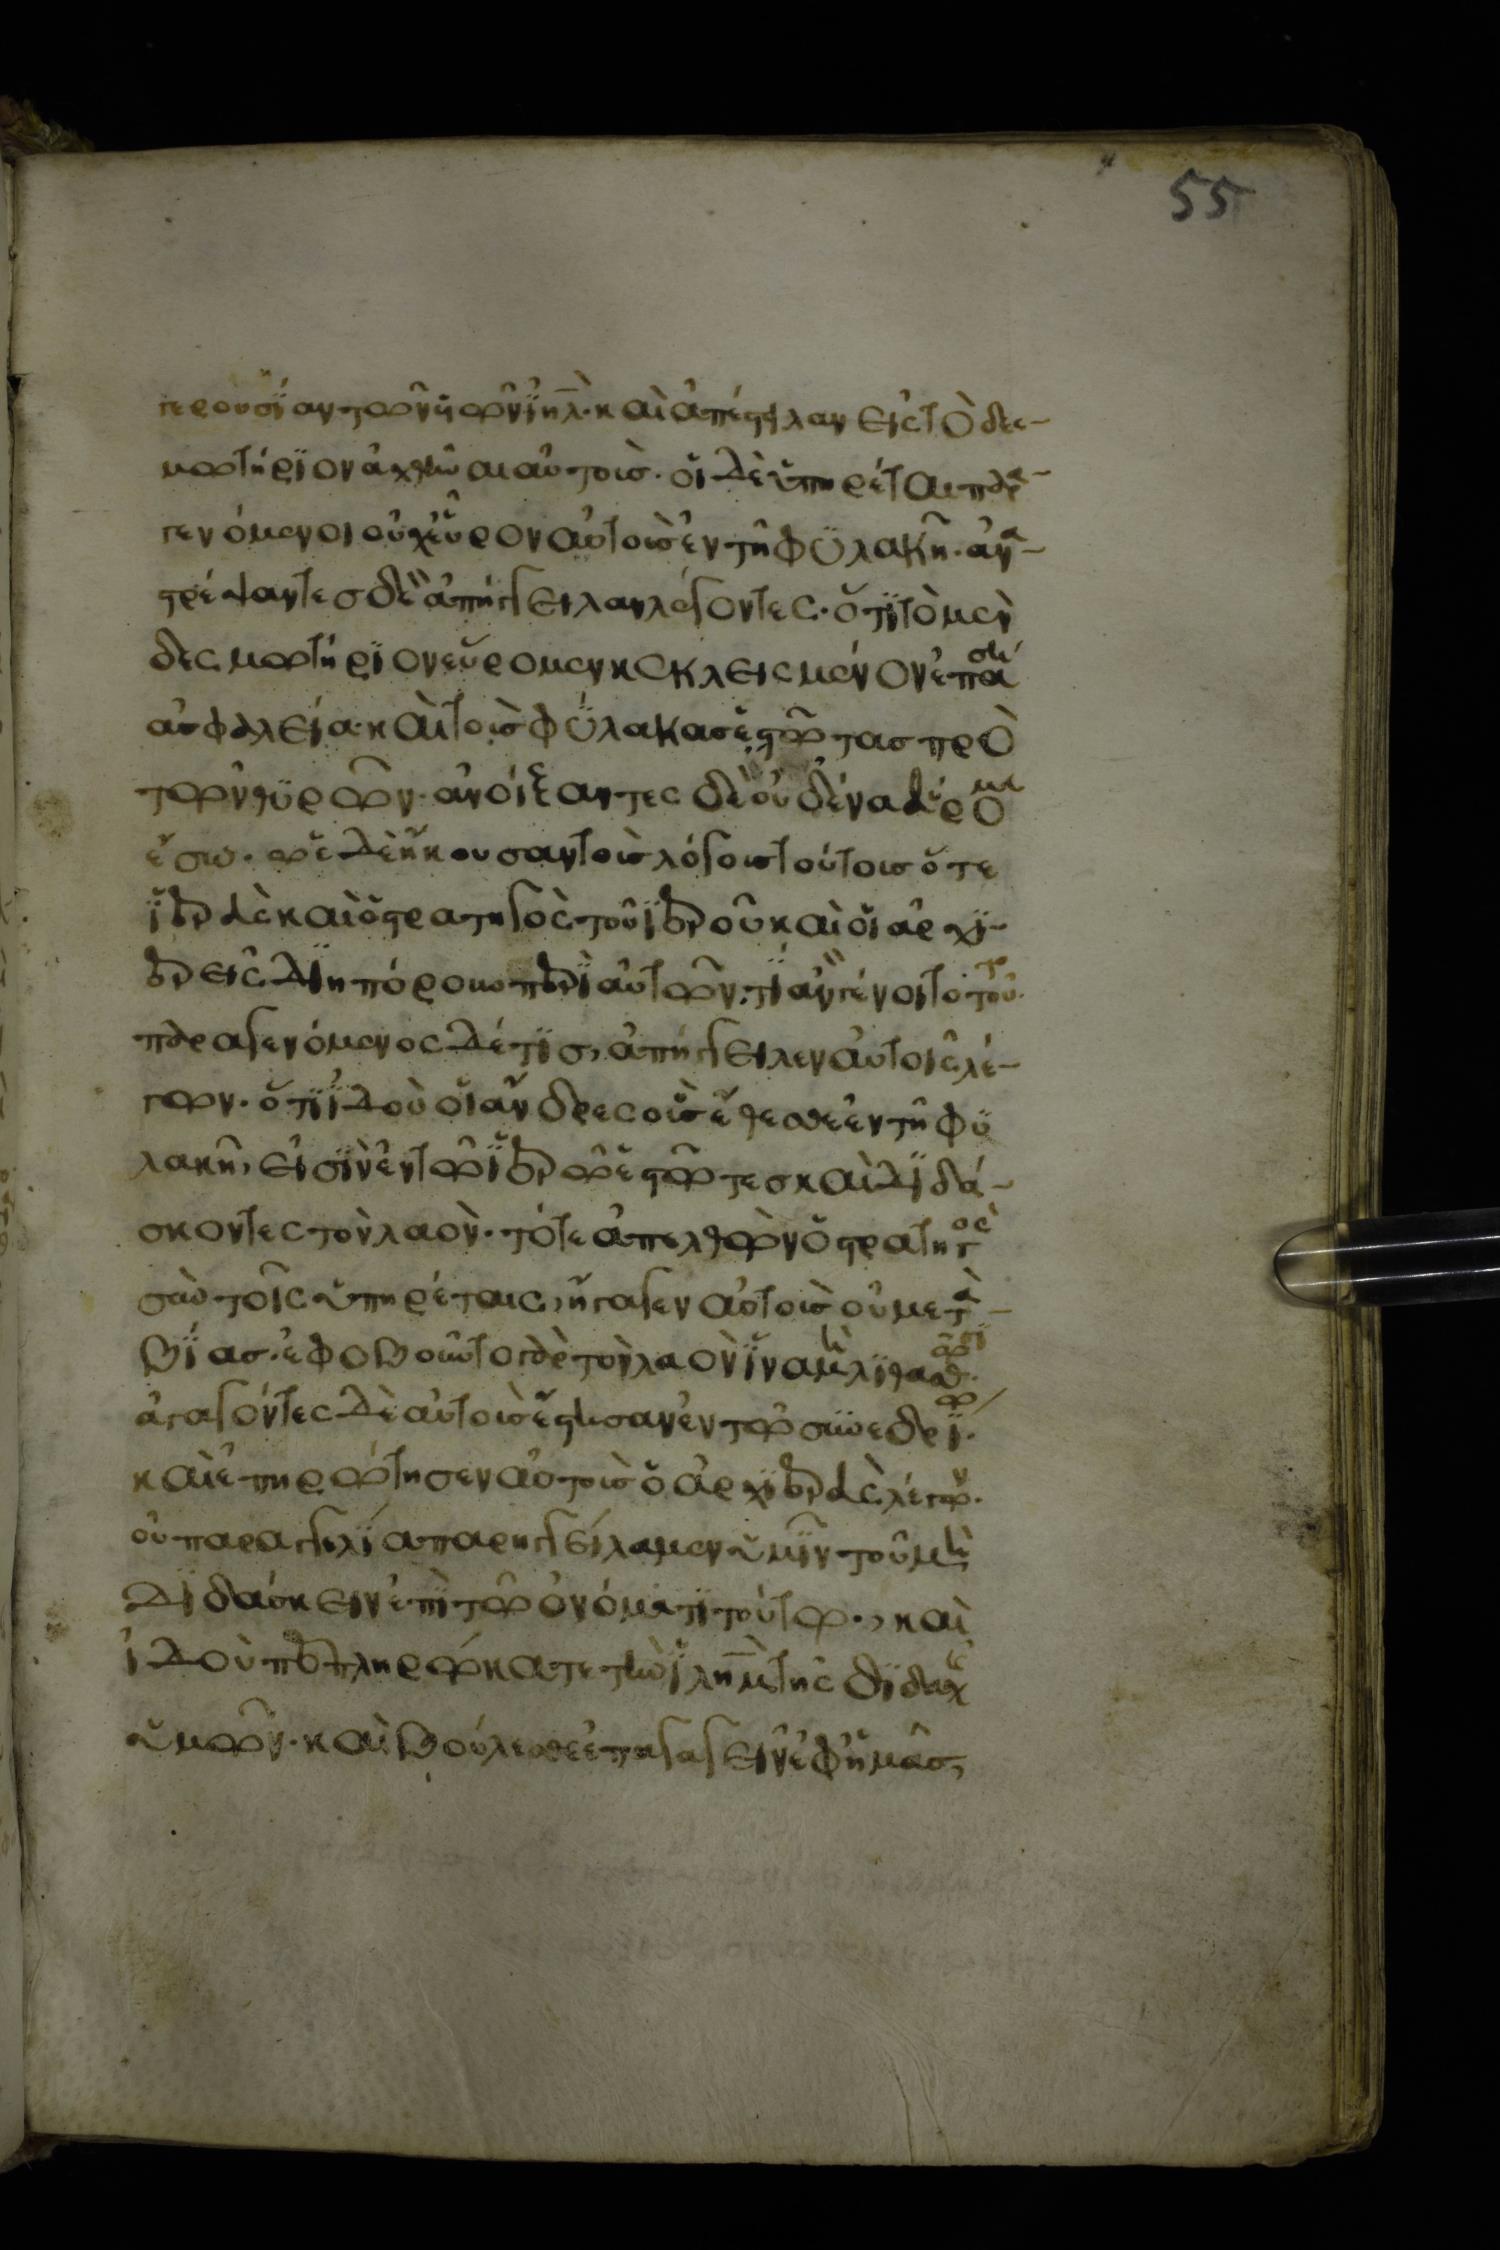 55
γερουσΐαν τῶν ϋῶν ϊηλ· καὶ ἀπέστηλαν εἰς τὸ δεσ-
μωτήρϊον ἀχθῆναι αὐτοὺς· οἱ δὲ ὑπηρέται παρα-
γενόμενοι οὐχ εὗρον αὐτοὺς ἐν τῆ φϋλακῆ· ἀνα-
στρέψαντες δὲ ἀπήγγειλαν λέγοντες· ὅτϊ τὸ μὲν
δεσμωτήρϊον εὕρομεν κεκλεισμένον ἐν πάση
ἀσφαλεία· καὶ τοὺς φϋλακας ἑστῶτας πρὸ
τῶν θϋρῶν· ἀνοίξαντες δὲ οὐδένα εὕρομεν
ἔσω· ὡς δὲ ἤκουσαν τοὺς λόγους τούτους ὅ τε
ϊερεὺς καὶ ὁ στρατηγὸς τοῦ ϊεροῦ καὶ οἱ ἀρχϊ-
ερεῖς δϊηπόρουν περὶ αὐτῶν· τϊ ἂν γένοιτο τοῦτο·
παραγενόμενος δέ τϊς, ἀπήγγειλεν αὐτοῖς λέ-
γων· ὅτϊ ϊδοὺ οἱ ἄνδρες οὓς ἔθεσθε ἐν τῆ φϋ
λακῆ, εἰσῒν ἐν τῶ ϊερῶ ἑστῶτες καὶ δϊδά-
σκοντες τὸν λαὸν· τότε ἀπελθὼν ὁ στρατηγὸς
σὺν τοῖς ὑπηρέταις, ἤγαγεν αὐτοὺς οὐ μετὰ
βΐας· ἐφοβοῦντο γὰρ τὸν λαὸν ϊνα μὴ λϊθασθῶσϊ·
ἀγαγόντες δὲ αὐτοὺς ἔστησαν ἐν τῶ συνεδρΐω·
καὶ ἐπηρώτησεν αὐτοὺς ὁ ἀρχϊερεὺς λέγων·
οὐ παραγγελΐα παρηγγείλαμεν ὑμῖν τοῦ μὴ
δϊδάσκειν ἐπῒ τῶ ὀνόματϊ τούτω·, καὶ
ἰδοὺ πεπληρώκατε τὴν ϊλημ τῆς δϊδαχῆς
ὑμῶν· καὶ βούλεσθε ἐπαγαγεῖν ἐφ' ἡμᾶς,